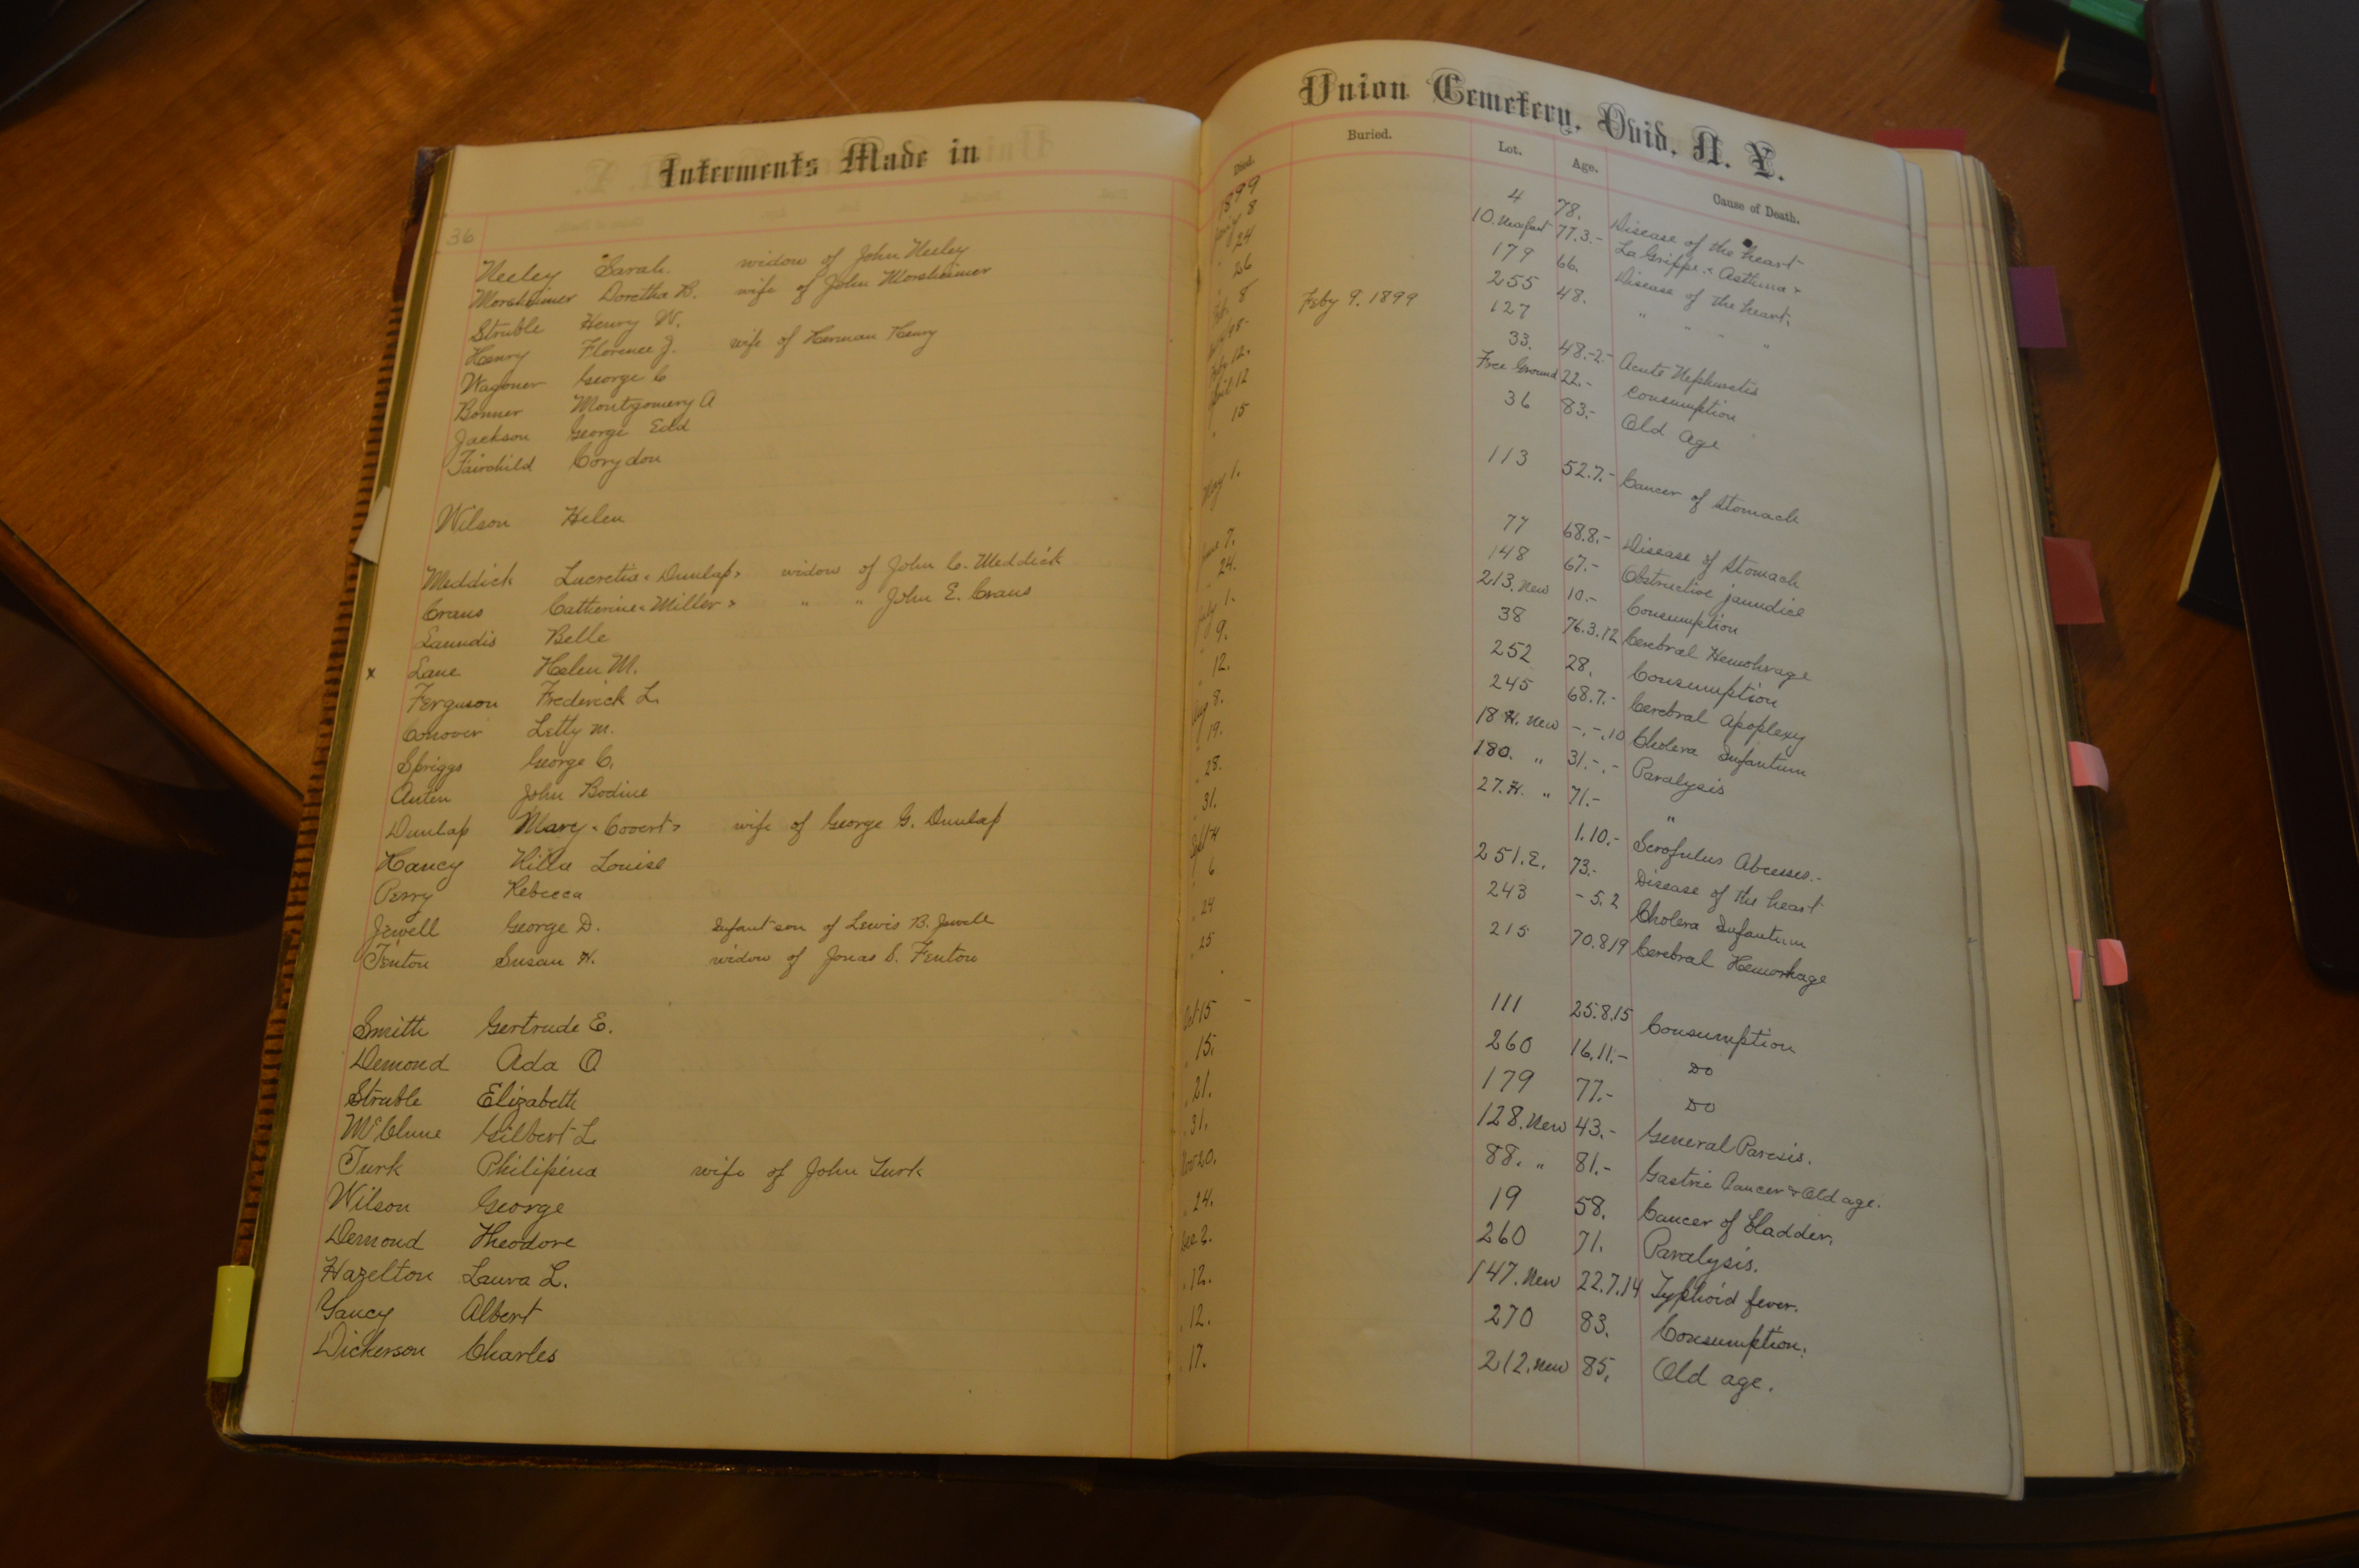 Interments Made in
36
Neeley Sarah. widow of John Neeley
Morsheimer Doretha B. wife of John Morsheimer
Struble Henry W.
Henry Florence J. wife of Herman Henry
Wagoner George C
Bonner Montgomery A
Jackson George Edd
Fairchild Corydon
Wilson Helen
Meddick Lucretia (Dunlap) widow of John C. Meddick
Craus Catherine (Miller) " " John E. Craus
Laundis Belle
x Lane Helen M.
Ferguson Frederick L.
Conover Letty M.
Spriggs George C.
Auten John Bodine
Dunlap Mary (Covert) wife of George G. Dunlap
Yancy Louise
Perry Rebecca
Jewell George D. Infant son of Lewis B. Jewell
Fenton Susan H. widow of Jonas S. Fenton
Smith Gertrude E.
Demond Ada O
Struble Elizabeth
McClune Gilbert L
Turk Philipina wife of John Turk
Wilson George
Demond Theodore
Hazelton Laura L.
Yancy Albert
Dickerson Charles
Union Cemetery, Ovid, N. Y.
Died. Buried. Lot. Age. Cause of Death.
1899
8 4 78. Disease of the heart
" 24 10. 77.3.- La Grippe (Asthma)
" 26 179 66. Disease of the heart.
8 Feby 9. 1899 255 48. " " " "
127
12. 33. 48.-2- Acute Nephuretis
12 Free Ground 22.- Consumption
" 15 36 83.- Old Age
May 1. 113 52.7.- Cancer of Stomach
June 7. 77 68.8.- Disease of Stomach
" 24. 148 67.- Obstructive jaundice
July 1. 213. New 10.- Consumption
" 9. 38 76.3.12 Cerebral Hemohrage
" 12. 252 28. Consumption
Aug 8. 245 68.7.- Cerebral Apoplexy
" 19. 18 H. New -.-.10 Cholera Infantum
" 28. 180. " 31.-.- Paralysis
" 31. 27. H. " 71.- "
Sept 4 1.10.- Scrofulus Abcesses.-
" 6 251.E. 73.- Disease of the heart
" 24 243 -5.2 Cholera Infantum
" 25 215 70.8.19 Cerebral Hemorhage
Oct 15 - 111 25.8.15 Consumption
" 15. 260 16.11.- DO
" 21. 179 77.- DO
" 31. 128. New 43.- General Paresis.
Nov 20. 88. " 81.- Gastric Cancer & Old age.
" 24. 19 58. Cancer of Bladder.
Dec 2. 260 71. Paralysis.
" 12. 147. New 22.7.14 Typhoid fever.
" 12. 270 83. Consumption.
" 17. 212. New 85. Old age.